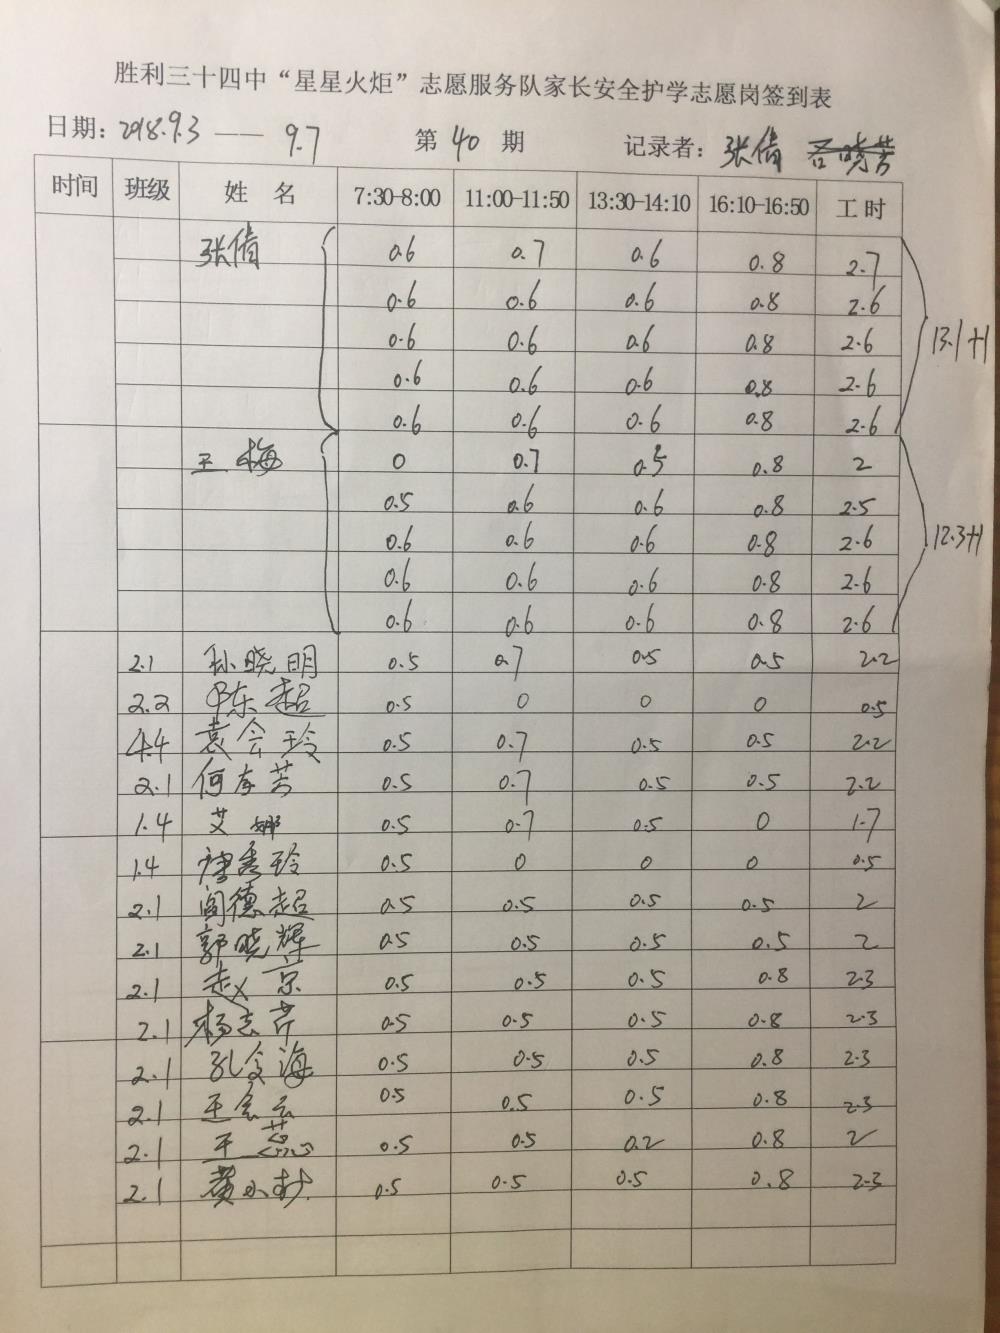 胜利三十四中“星星火炬”志愿服务队家长安全护学志愿岗签到表
日期：2018.9.3 —— 9.7 第 40 期 记录者：张倩
时间 班级 姓 名 7:30-8:00 11:00-11:50 13:30-14:10 16:10-16:50 工时
张倩 0.6 0.7 0.6 0.8 2.7
0.6 0.6 0.6 0.8 2.6
0.6 0.6 0.6 0.8 2.6 13.1+1
0.6 0.6 0.6 0.8 2.6
0.6 0.6 0.6 0.8 2.6
王梅 0 0.7 0.5 0.8 2
0.5 0.6 0.6 0.8 2.5
0.6 0.6 0.6 0.8 2.6 12.3+1
0.6 0.6 0.6 0.8 2.6
0.6 0.6 0.6 0.8 2.6
2.1 孙晓明 0.5 0.7 0.5 0.5 2.2
2.2 申东超 0.5 0 0 0 0.5
4.4 袁会玲 0.5 0.7 0.5 0.5 2.2
2.1 何存芳 0.5 0.7 0.5 0.5 2.2
1.4 艾娜 0.5 0.7 0.5 0 1.7
1.4 唐秀玲 0.5 0 0 0 0.5
2.1 阎德超 0.5 0.5 0.5 0.5 2
2.1 郭晓辉 0.5 0.5 0.5 0.5 2
2.1 赵京 0.5 0.5 0.5 0.8 2.3
2.1 杨志芹 0.5 0.5 0.5 0.8 2.3
2.1 孔令海 0.5 0.5 0.5 0.8 2.3
2.1 王会云 0.5 0.5 0.5 0.8 2.3
2.1 王蕊 0.5 0.5 0.2 0.8 2
2.1 黄小 0.5 0.5 0.5 0.8 2.3